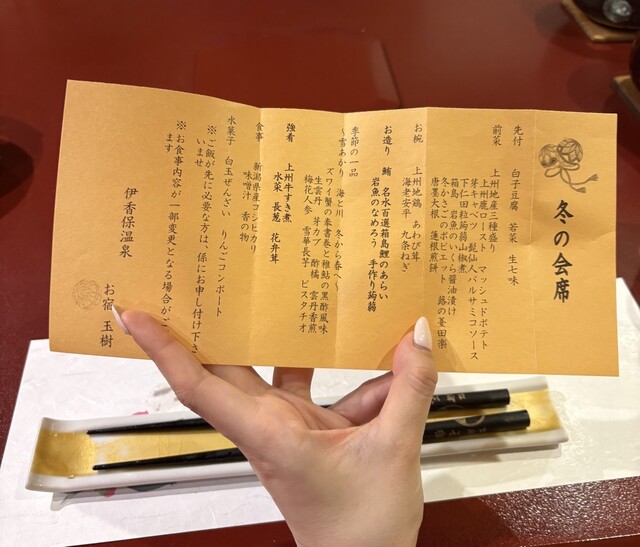 冬の会席
先付 白子豆腐 若菜 生七味
前菜 上州地産三種盛り
上州鹿ロースト マッシュドポテト
芽キャベツ 髭仙人バルサミコソース
下仁田粒蒟蒻山椒煮
箱島 岩魚のいくら醤油漬け
冬かさごのポピエット 蕗の薹田楽
唐墨大根 蓮根煎餅
お椀 上州地鶏 あわび茸
海老安平 九条ねぎ
お造り 鮪 名水百選箱島鯉のあらい
岩魚のなめろう 手作り蒟蒻
季節の一品
～雪あかり 海と川 冬から春へ～
ズワイ蟹の奉書巻と稚鮎の黒酢風味
生雲丹 芽カブ 酢橘 雲丹香煎
梅花人参 雪華長芋 ピスタチオ
強肴 上州牛すき煮
水菜 長葱 花弁茸
食事 新潟県産コシヒカリ
味噌汁 香の物
水菓子 白玉ぜんざい りんごコンポート
※ご飯が先に必要な方は、係にお申し付け下さ
いませ
※お食事内容が一部変更となる場合がご
ます
伊香保温泉
お宿 玉樹